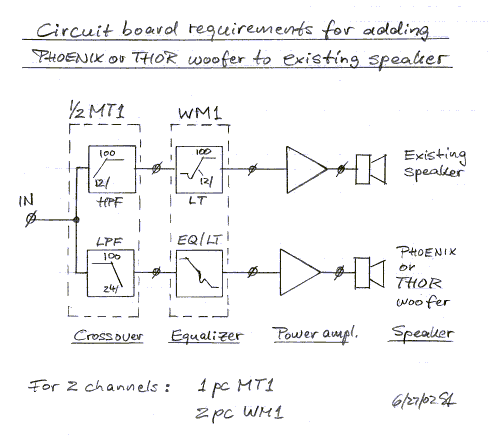 Circuit board requirements for adding
PHOENIX or THOR woofer to existing speaker
1/2 MT1
WM1
100
12/
HPF
100
12/
LT
Existing
speaker
IN
LPF
100
24/
EQ/LT
PHOENIX
or
THOR
woofer
Crossover
Equalizer
Power ampl.
Speaker
For 2 channels: 1 pc MT1
2 pc WM1
6/27/02 SL